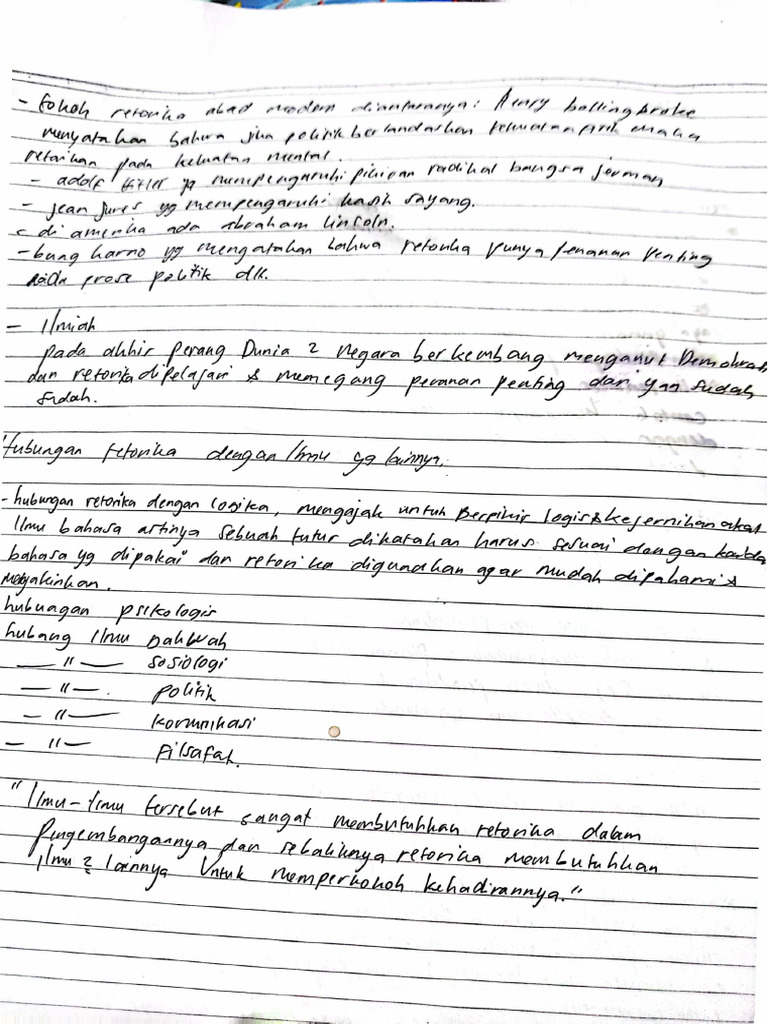 - tokoh retorika abad modern diantaranya: Henry bolling broke
menyatakan bahwa jika politik berlandaskan kekuatan fisik maka
retorikan pada kekuatan mental.
- adolf Hitler yg mempengaruhi pikiran radikal bangsa jerman
- jean jures yg mempengaruhi kasih sayang.
- di amerika ada abraham lincoln.
- bung karno yg mengatakan bahwa retorika punya penanan penting
pada prose politik dll.
- Ilmiah
pada akhir perang Dunia 2 Negara berkembang menganut Demokrati
dan retorika dipelajari & memegang peranan penting dari yang sudah
sudah.
Hubungan retorika dengan Ilmu yg lainnya.
- hubungan retorika dengan logika, mengajak untuk Berpikir logis & kejernihan akal
Ilmu bahasa artinya sebuah tutur dikatakan harus sesuai dengan kaida
bahasa yg dipakai dan retorika digunakan agar mudah dipahami &
meyakinkan.
hubungan psikologis
hubang Ilmu Dakwah
— " — sosiologi
— " — . politik
— " — komunikasi
— " — Filsafat.
"Ilmu-Ilmu tersebut sangat membutuhkan retorika dalam
Pengembangannya dan sebaliknya retorika membutuhkan
Ilmu 2 lainnya Untuk memperkokoh kehadirannya."